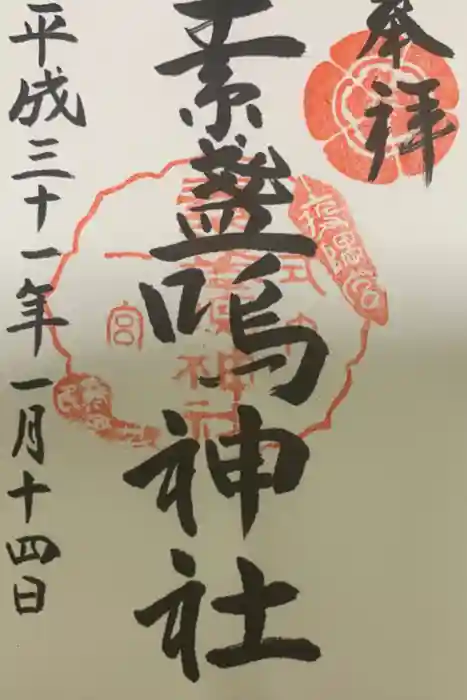 奉拝
素盞嗚神社
平成三十一年一月十四日